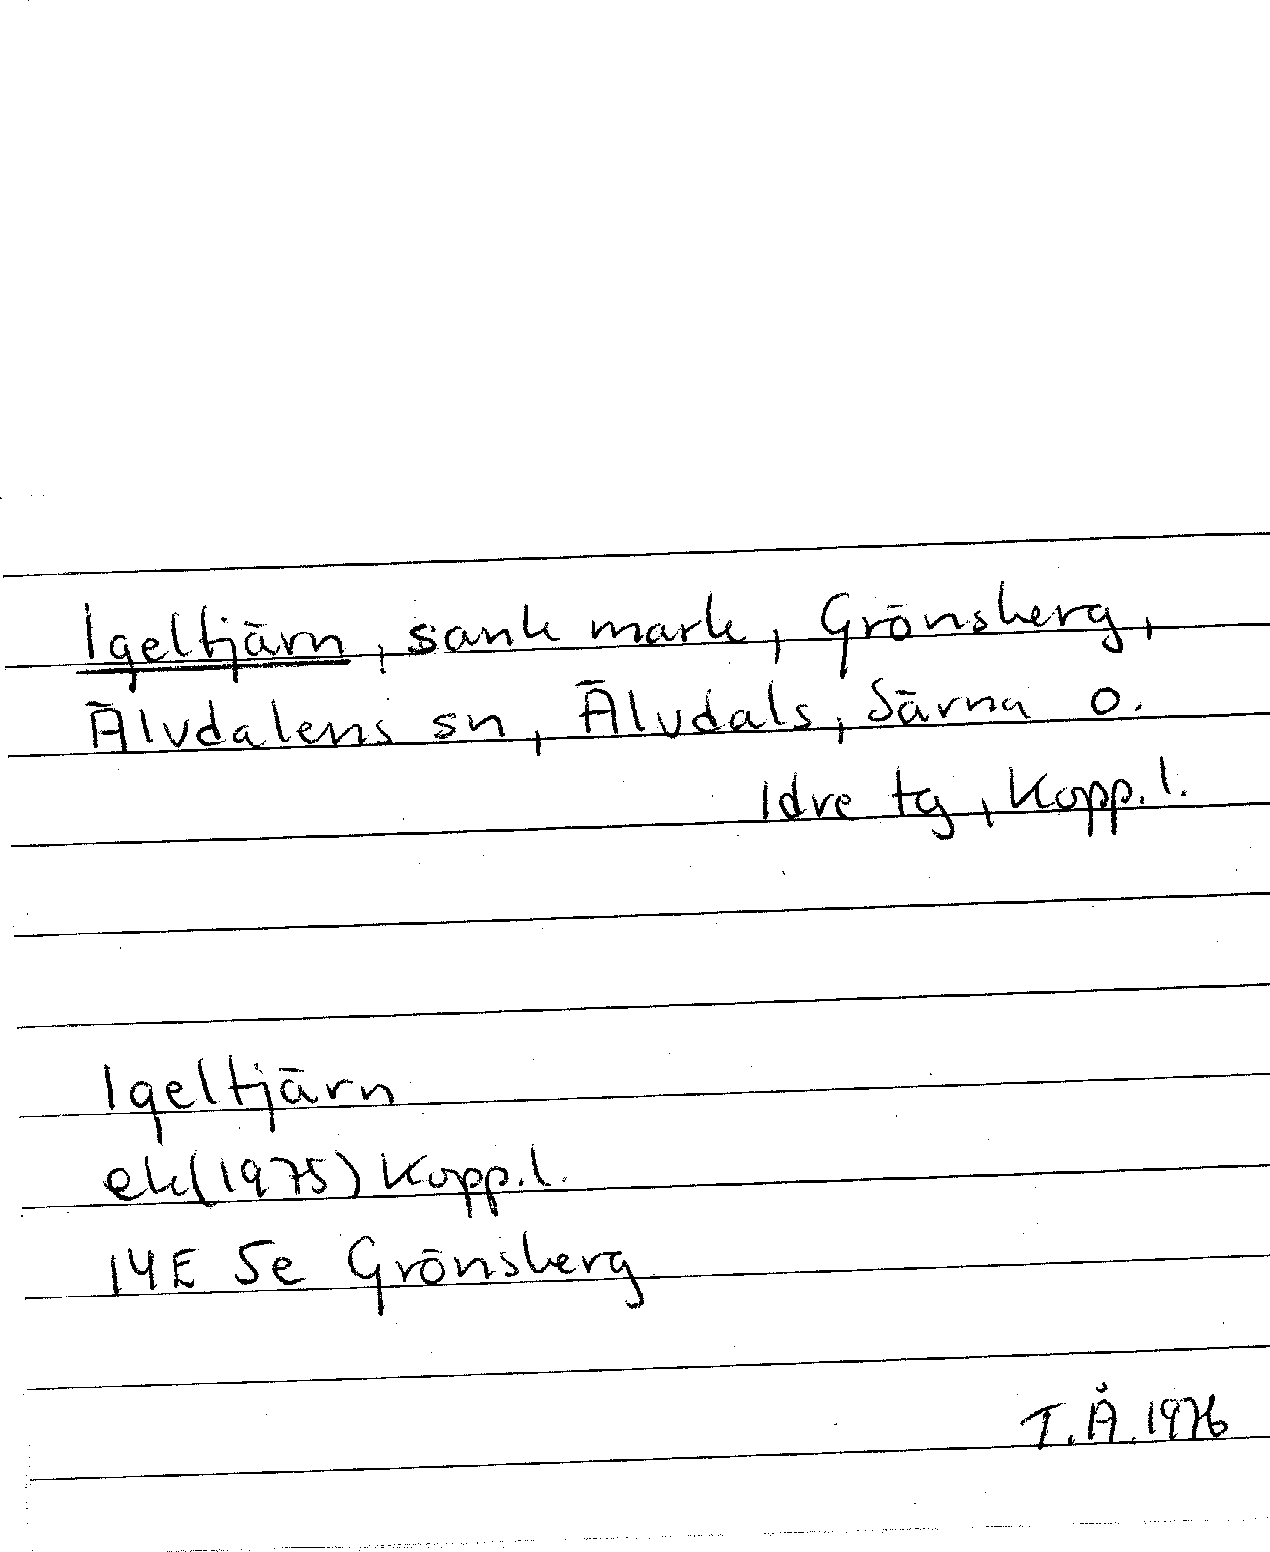 Igeltjärn, sank mark, Grönsberg,
Älvdalens sn, Älvdals, Särna o.
Idre tg, Kopp.l.
Igeltjärn
ek(1975) Kopp.l.
14E 5e Grönsberg
T.Å.1976